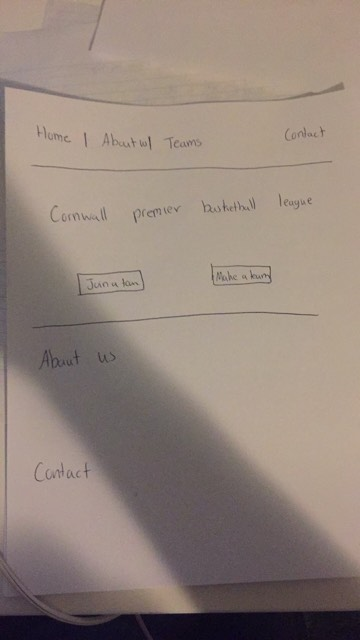 Home | About us | Teams Contact
Cornwall premier basketball league
Join a team Make a team
About us
Contact